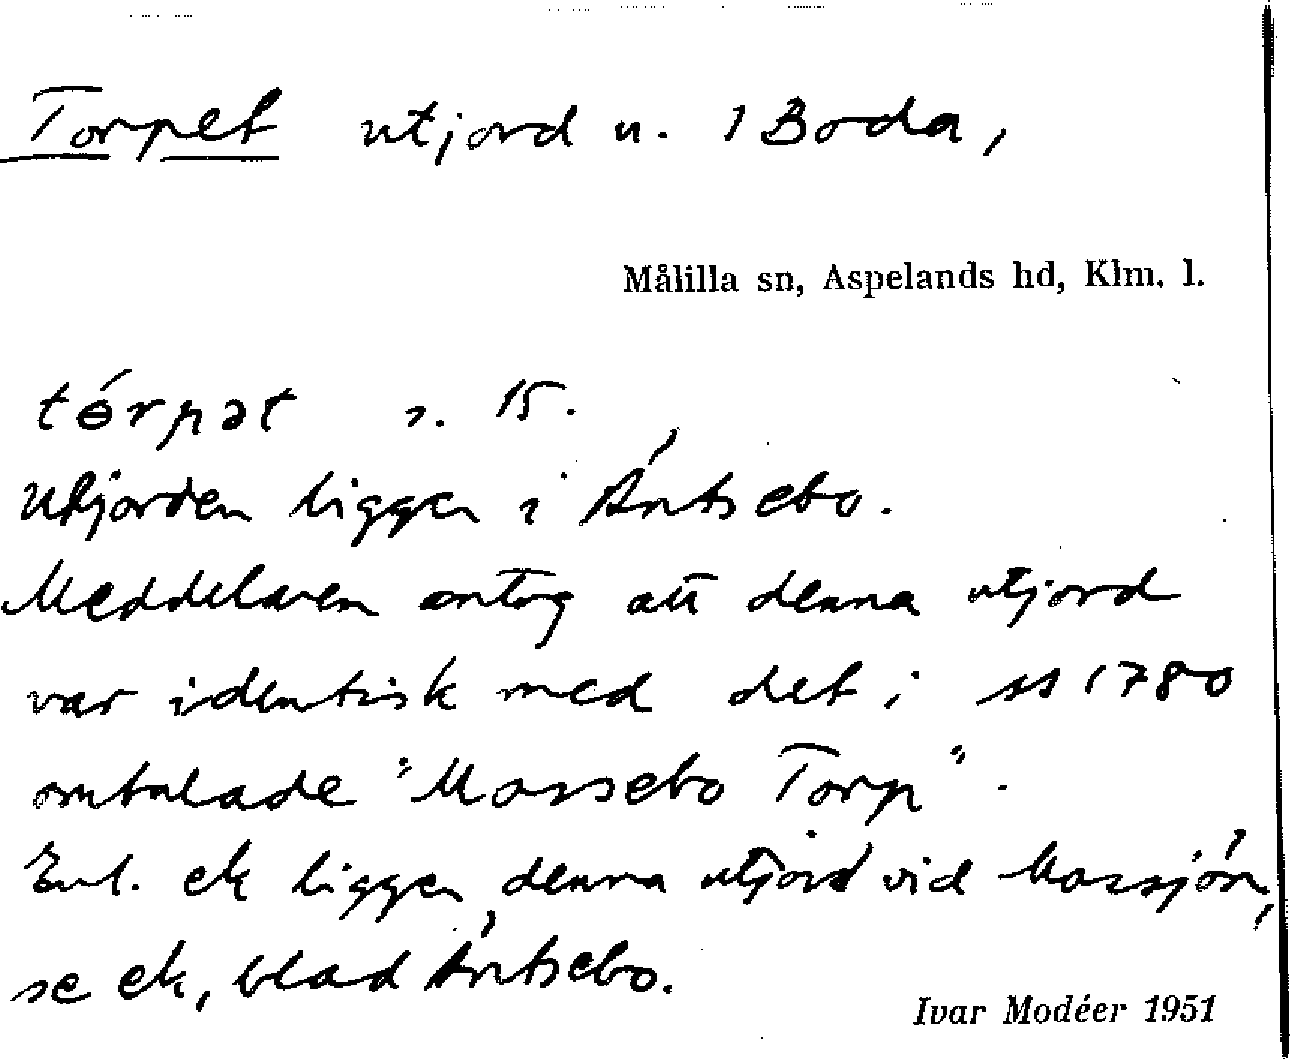 Torpet utjord u. 1 Boda,
Målilla sn, Aspelands hd, Klm. l.
tɵ́rpət s. 15.
Utjorden ligger i Äntsebo.
Meddelaren antog att denna utjord
var identisk med det i ss 1780
omtalade "Mossebo Torp".
Enl. ek ligger denna utjord vid Mossjön,
se ek, blad Äntsebo.
Ivar Modéer 1951